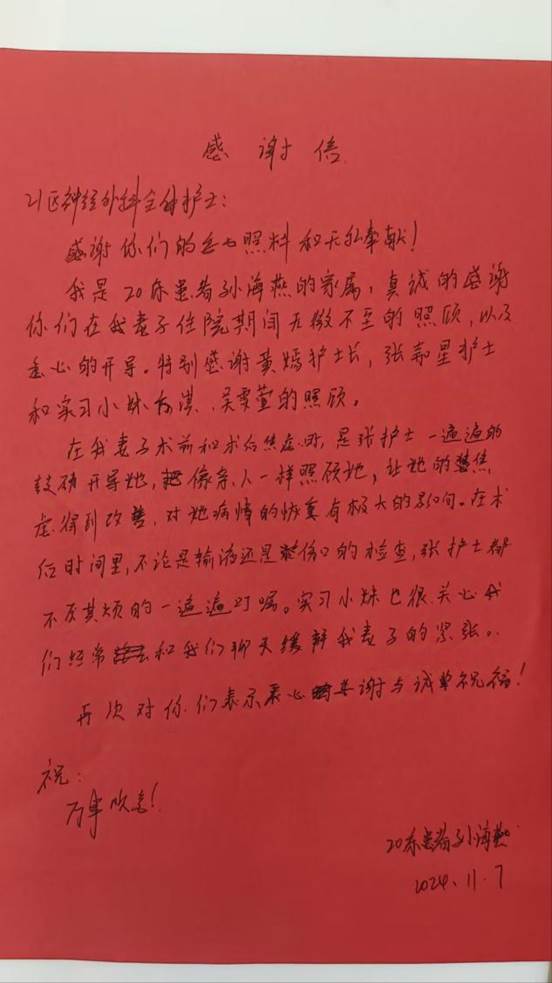 感谢信
21区神经外科全体护士：
感谢你们的细心照料和无私奉献！
我是20床患者孙海燕的家属，真诚的感谢
你们在我妻子住院期间无微不至的照顾，以及
悉心的开导。特别感谢黄嫣护士长，张嘉星护士
和实习小妹 、吴雯萱的照顾。
在我妻子术前和术后焦虑时，是张护士一遍遍的
鼓励开导她，像亲人一样照顾她，让她的焦
虑得到改善，对她病情的恢复有极大的影响。在术
后时间里，不论是输液还是伤口的检查，张护士都
不厌其烦的一遍遍叮嘱。实习小妹也很关心我
们经常和我们聊天缓解我妻子的紧张。
再次对你们表示衷心感谢与诚挚祝福！
祝：
万事如意！
20床患者孙海燕
2024.11.7